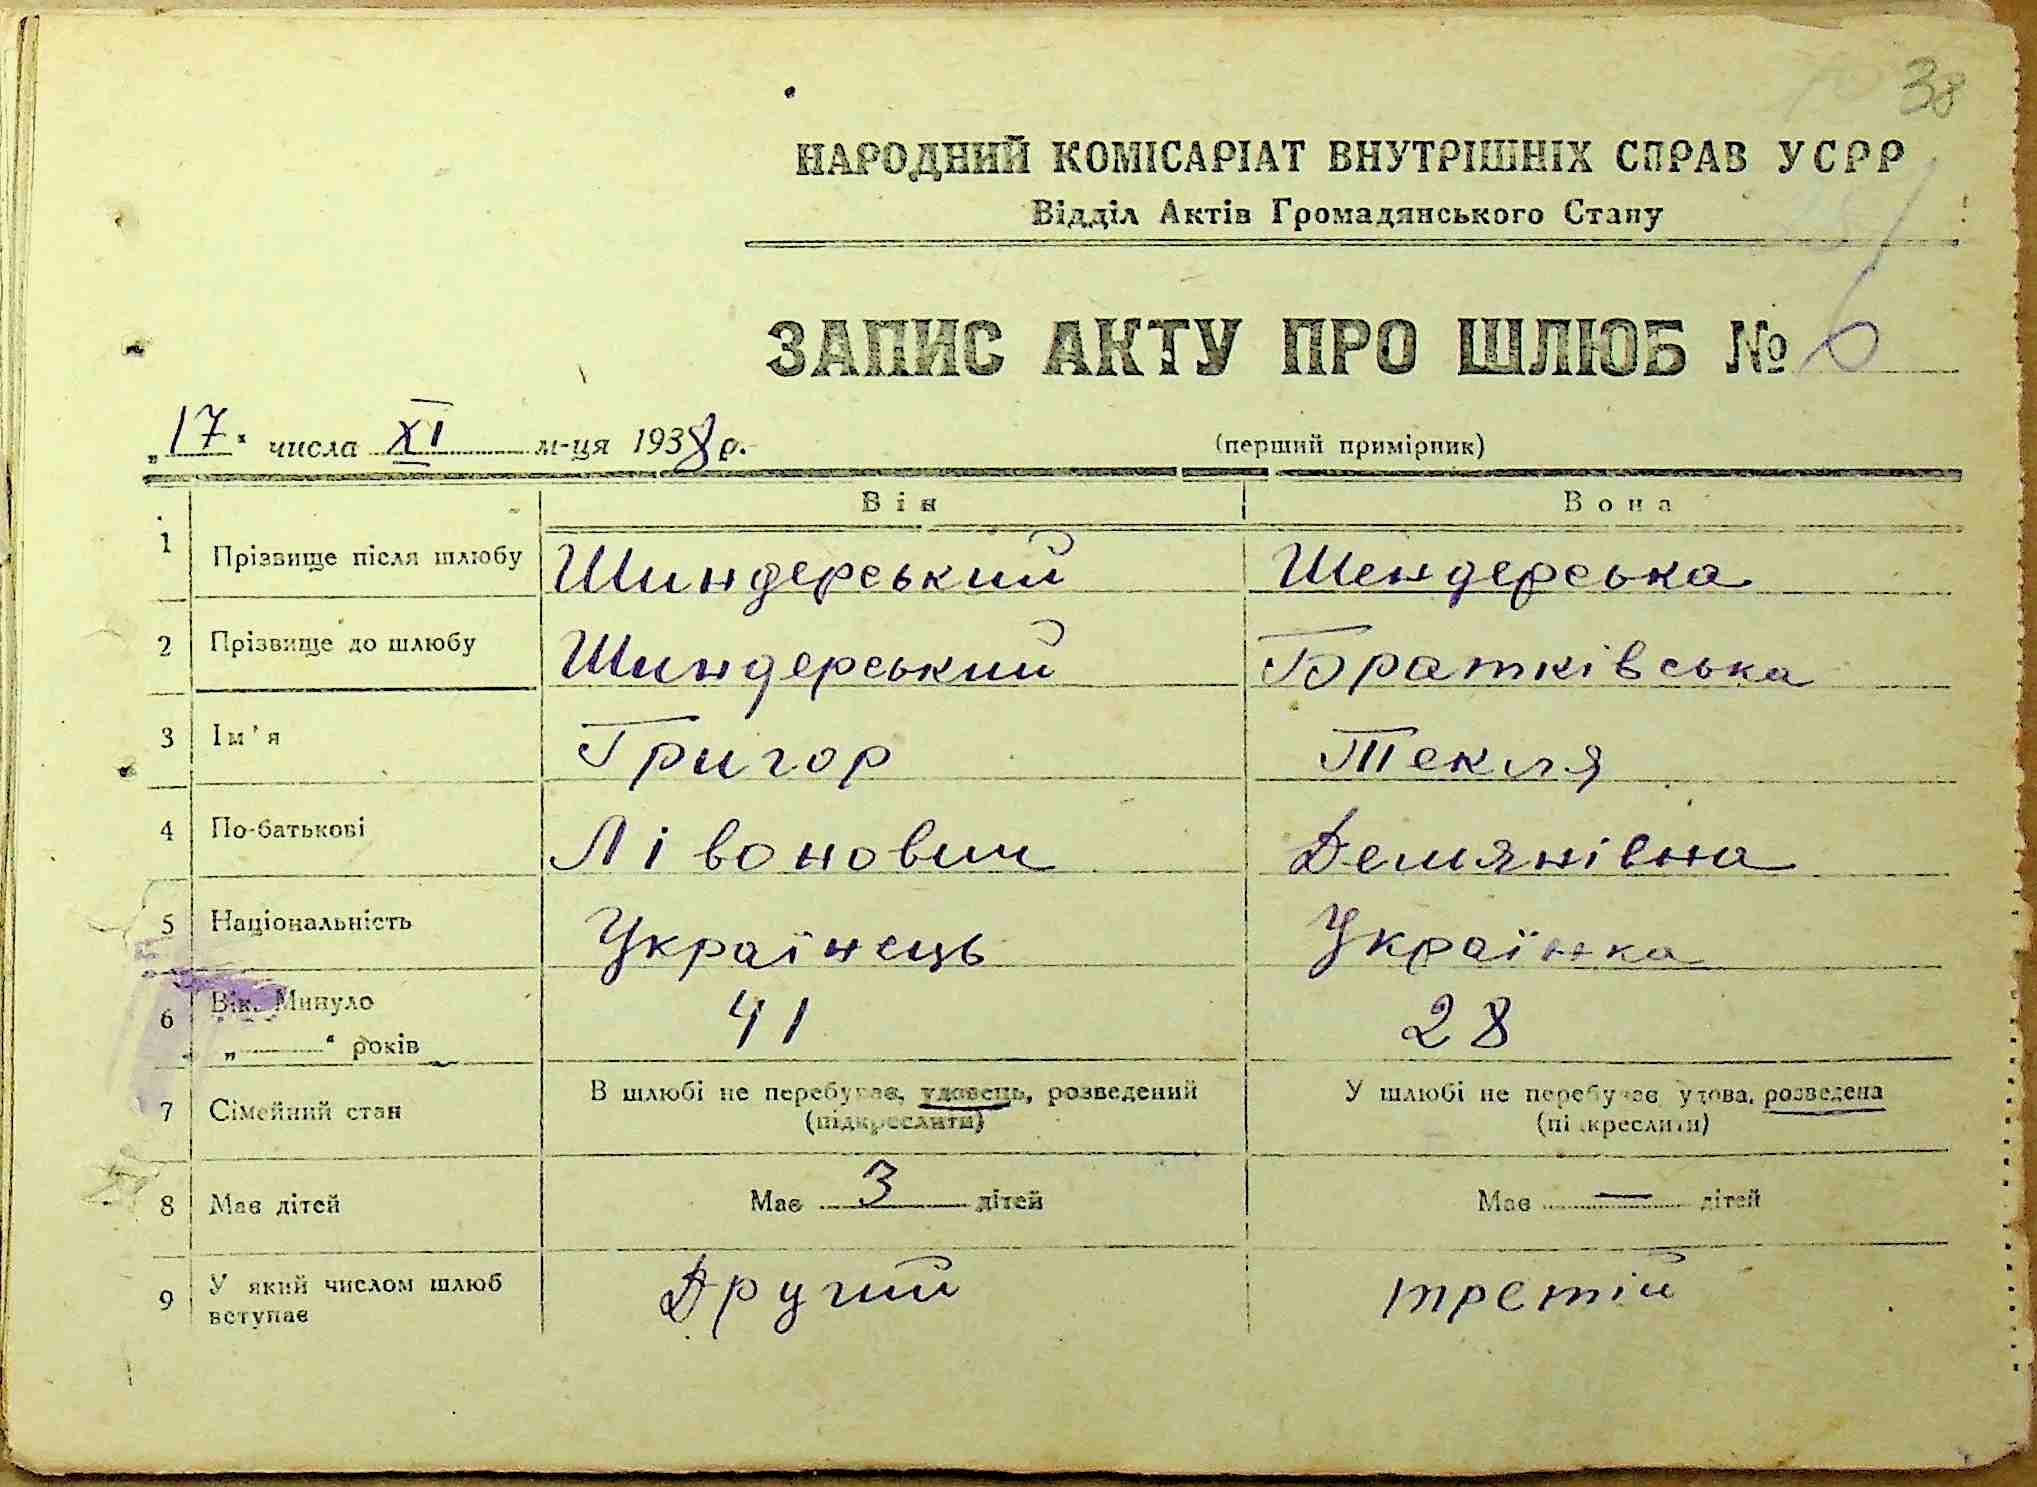 38
НАРОДНИЙ КОМІСАРІАТ ВНУТРІШНІХ СПРАВ УСРР
Відділ Актів Громадянського Стану
ЗАПИС АКТУ ПРО ШЛЮБ № 6
„17“ числа XI м-ця 1938 р.
(перший примірник)
Він Вона
1 Прізвище після шлюбу Шиндерський Шендерська
2 Прізвище до шлюбу Шиндерський Братківська
3 Ім'я Григор Текля
4 По-батькові Лівонович Демянівна
5 Національність Українець Українка
6 Вік. Минуло 41 28
„ “ років
7 Сімейний стан В шлюбі не перебуває, удовець, розведений У шлюбі не перебуває удова, розведена
(підкреслити) (підкреслити)
8 Має дітей Має 3 дітей Має — дітей
9 У який числом шлюб Другий третій
вступає